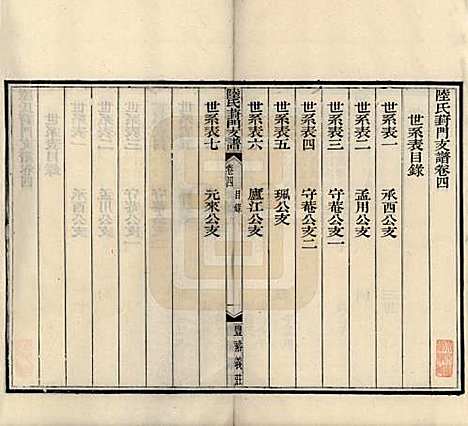 陸氏葑門支譜卷四
世系表目錄
世系表一 承酉公支
世系表二 孟用公支
世系表三 守菴公支一
世系表四 守菴公支二
世系表五 珮公支
世系表六 廬江公支
陸氏葑門支譜 卷四 目錄 豐裕義莊
世系表七 元來公支